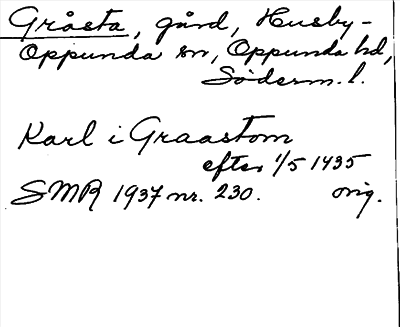 Gråsta, gård, Husby-
Oppunda sn, Oppunda hd,
Söderm. l.
Karl i Graastom
efter 1/5 1435
SMR 1937 nr. 230. orig.